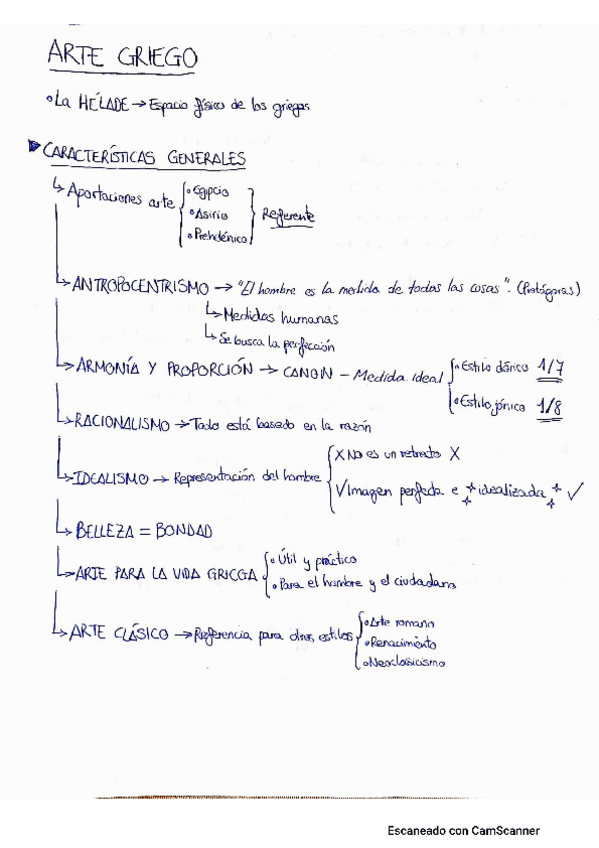 ARTE GRIEGO
• La HÉLADE → Espacio físico de los griegos
CARACTERÍSTICAS GENERALES
↳ Aportaciones arte { • Egipcio
• Asirio } Referente
• Prehelénico
↳ ANTROPOCENTRISMO → "El hombre es la medida de todas las cosas". (Protágoras)
↳ Medidas humanas
↳ Se busca la perfección
↳ ARMONÍA Y PROPORCIÓN → CANON - Medida ideal { • Estilo dórico 1/7
• Estilo jónico 1/8
↳ RACIONALISMO → Todo está basado en la razón
↳ IDEALISMO → Representación del hombre { X No es un retrato X
V Imagen perfecta e idealizada ✓
↳ BELLEZA = BONDAD
↳ ARTE PARA LA VIDA GRIEGA { • Útil y práctico
• Para el hombre y el ciudadano
↳ ARTE CLÁSICO → Referencia para otros estilos { • Arte romano
• Renacimiento
• Neoclasicismo
Escaneado con CamScanner